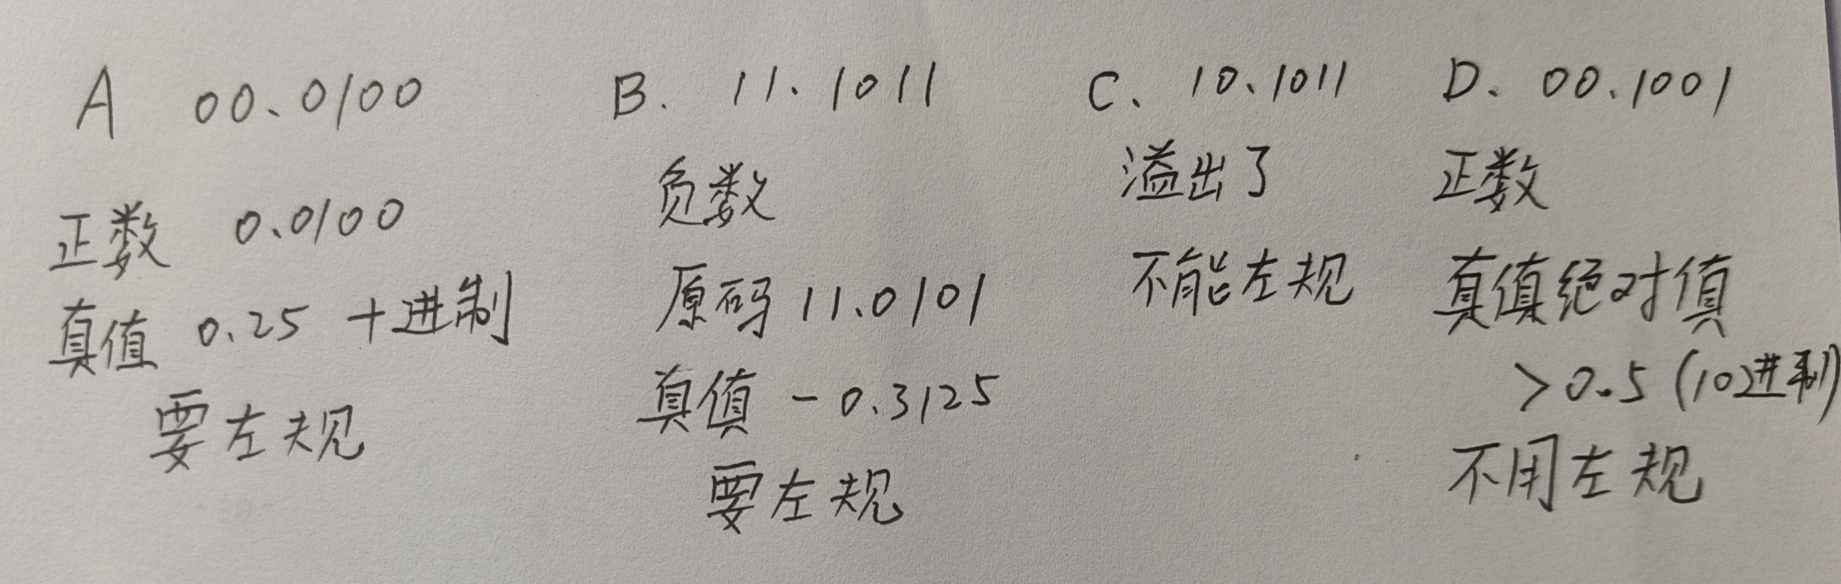 A 00.0100
正数 0.0100
真值 0.25 十进制
要左规
B. 11.1011
负数
原码 11.0101
真值 -0.3125
要左规
C、10.1011
溢出了
不能左规
D、00.1001
正数
真值绝对值
>0.5(10进制)
不用左规